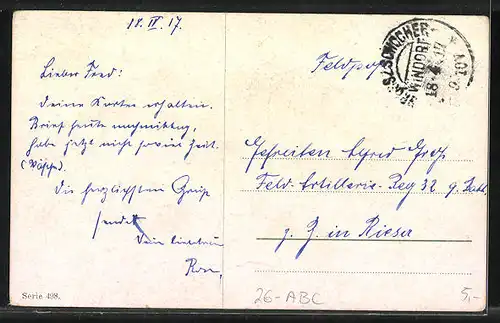 18. IV. 17.
Lieber Fred:
Deine Karten erhalten.
Brief heute nachmittag,
habe jetzt nicht soviel Zeit.
(Wäsche).
Die herzlichsten Grüße
sendet
Dein
Rose,
Serie 498.
Feldpost
WINDORF
18.4.17
Gefreiten Alfred
Feld-Artillerie-Reg 32
z. Z. in Riesa
26-ABC
5,-